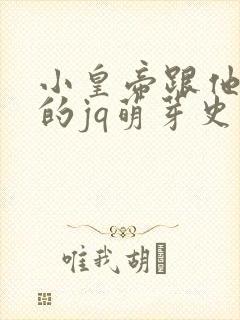 小皇帝跟他
的jq萌芽史
唯我胡